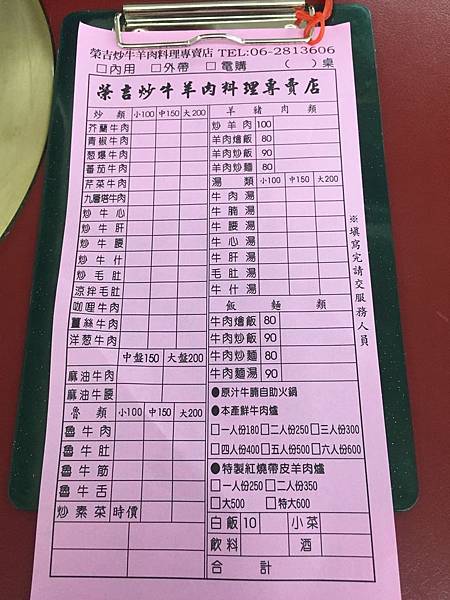 榮吉炒牛羊肉料理專賣店 TEL:06-2813606
□內用 □外帶 □電購 ( )桌
榮吉炒牛羊肉料理專賣店
炒類 小100 中150 大200
芥蘭牛肉
青椒牛肉
葱爆牛肉
蕃茄牛肉
芹菜牛肉
九層塔牛肉
炒牛心
炒牛肝
炒牛腰
炒牛什
炒毛肚
涼拌毛肚
咖哩牛肉
薑絲牛肉
洋葱牛肉
中盤150 大盤200
麻油牛肉
麻油牛腰
魯類 小100 中150 大200
魯牛肉
魯牛肚
魯牛筋
魯牛舌
炒素菜 時價
羊豬肉類
炒羊肉 100
羊肉燴飯 80
羊肉炒飯 90
羊肉炒麵 80
湯類 小100 中150 大200
牛肉湯
牛腩湯
牛腰湯
牛心湯
牛肝湯
毛肚湯
牛什湯
飯麵類
牛肉燴飯 80
牛肉炒飯 90
牛肉炒麵 80
牛肉麵湯 90
●原汁牛腩自助火鍋
●本產鮮牛肉爐
□一人份180 □二人份250 □三人份300
□四人份400 □五人份500 □六人份600
●特製紅燒帶皮羊肉爐
□一人份250 □二人份350
□大500 □特大600
白飯 10 小菜
飲料 酒
合計
※填寫完請交服務人員